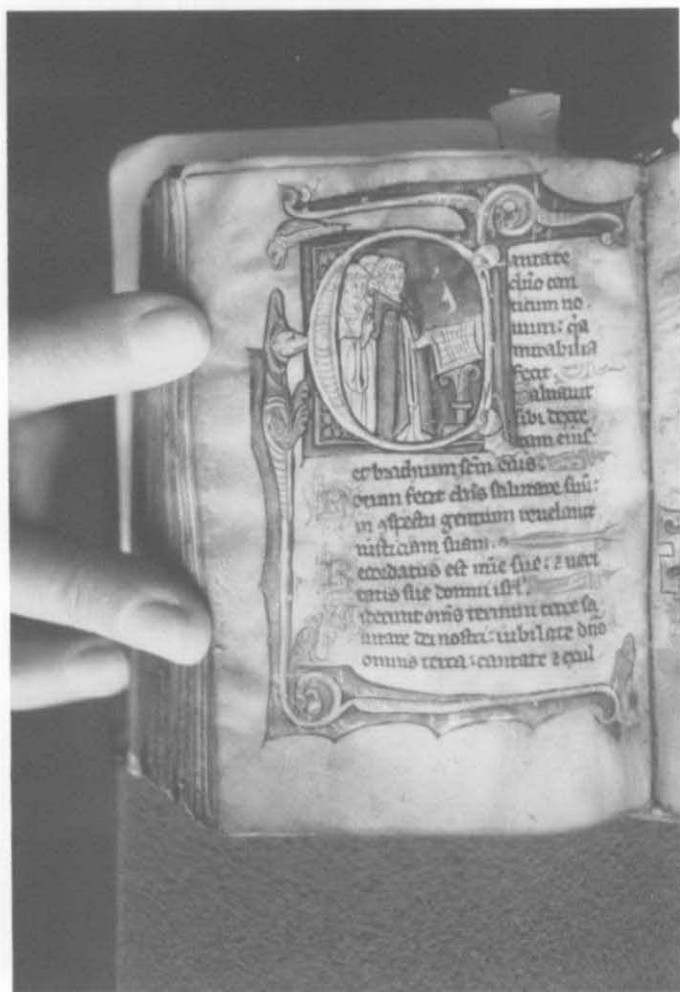 Cantate
dño can
ticum no
uum: q̃a
mirabilia
fecit.
Saluauit
sibi dexte
ram eius
et brachium sc̃m eius.
Notum fecit dñs salutare suũ:
in ɔspectu gentium reuelauit
iusticiam suam.
Recordatus est mĩe sue: ⁊ ueri
tatis sue domui isrl.
Viderunt om̃s termini terre sa
lutare dei nostri: iubilate dño
omnis terra: cantate ⁊ exul